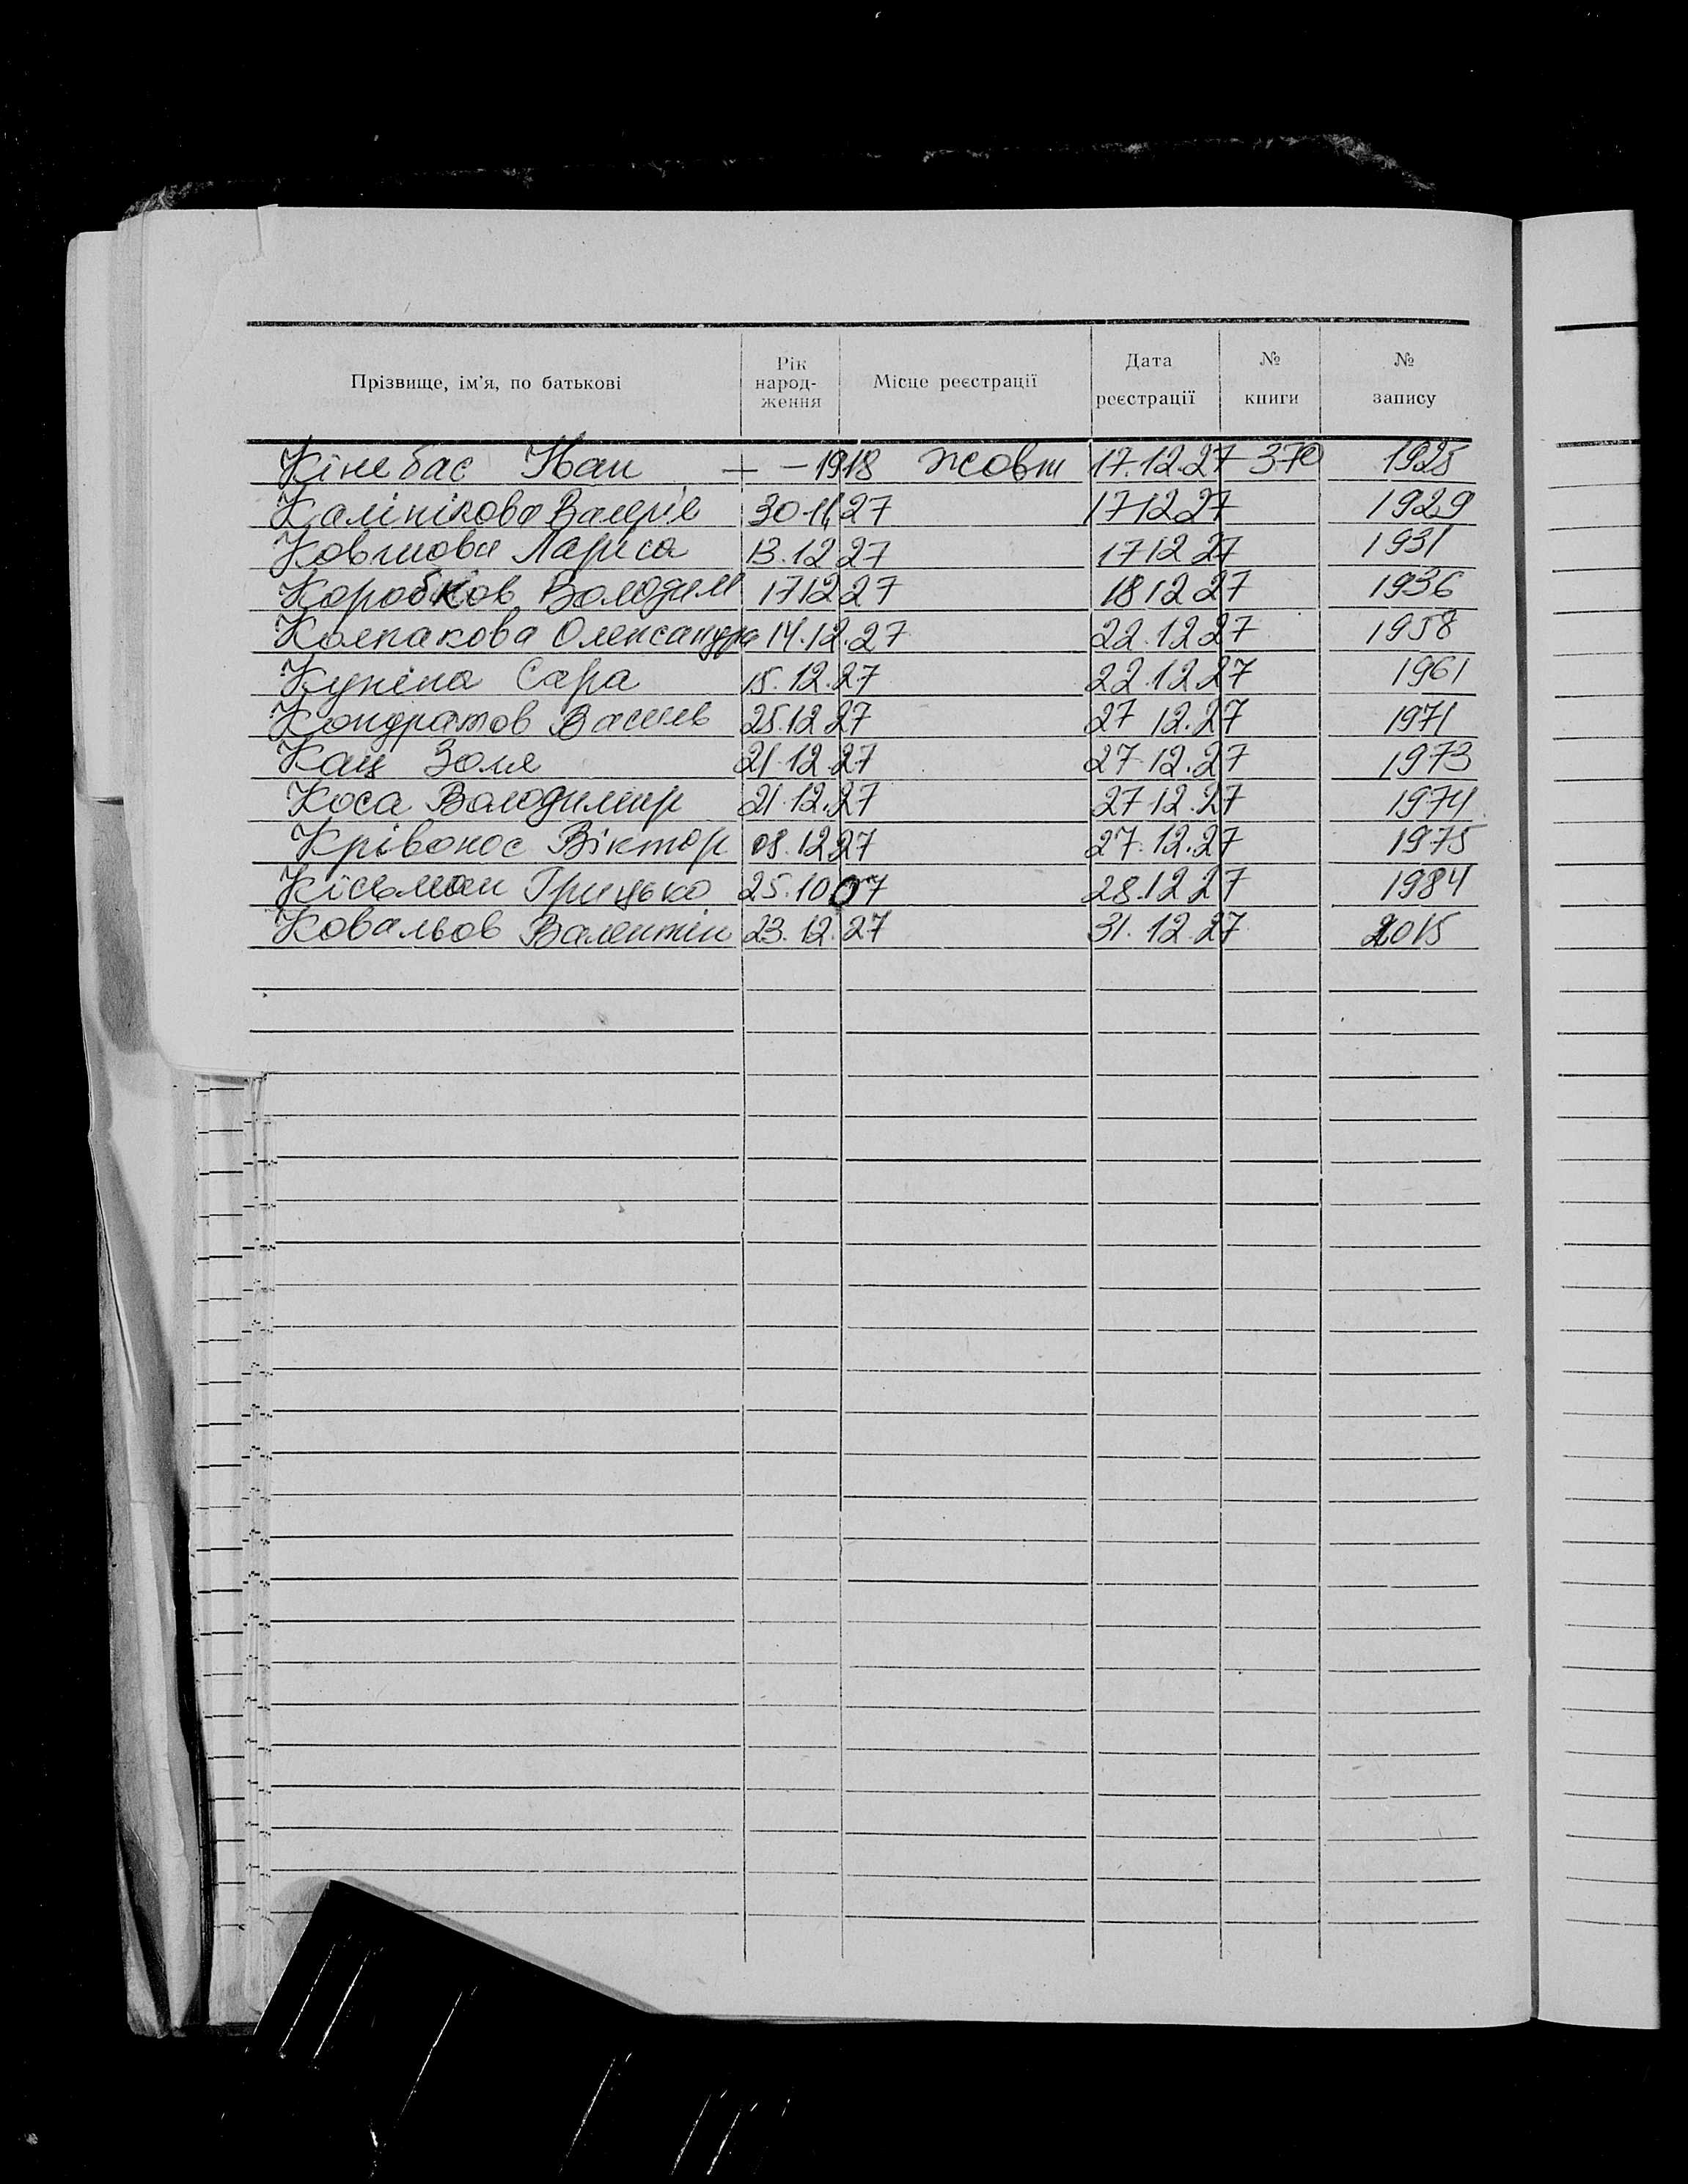 Прізвище, ім'я, по батькові Рік народ- ження Місце реєстрації Дата реєстрації № книги № запису
Кінебас Іван — — 1918 Жовт 17.12.27 370 1925
Калінікова Валерія 30.11.27 17 12 27 1929
Ковшова Лариса 13.12 27 17 12 27 1931
Коробков Володим 17 12 27 18 12 27 1936
Колпакова Олександра 14.12.27 22.12 27 1958
Купіна Сара 15.12.27 22.12 27 1961
Кондратов Васил 25.12 27 27 12.27 1971
Кац Золя 21.12.27 27.12.27 1973
Коса Володимир 21.12.27 27 12.27 1974
Крівонос Віктор 08.12 27 27.12.27 1975
Грицько 25.10 07 28.12 27 1984
Ковальов Валентін 23.12.27 31.12.27 2015